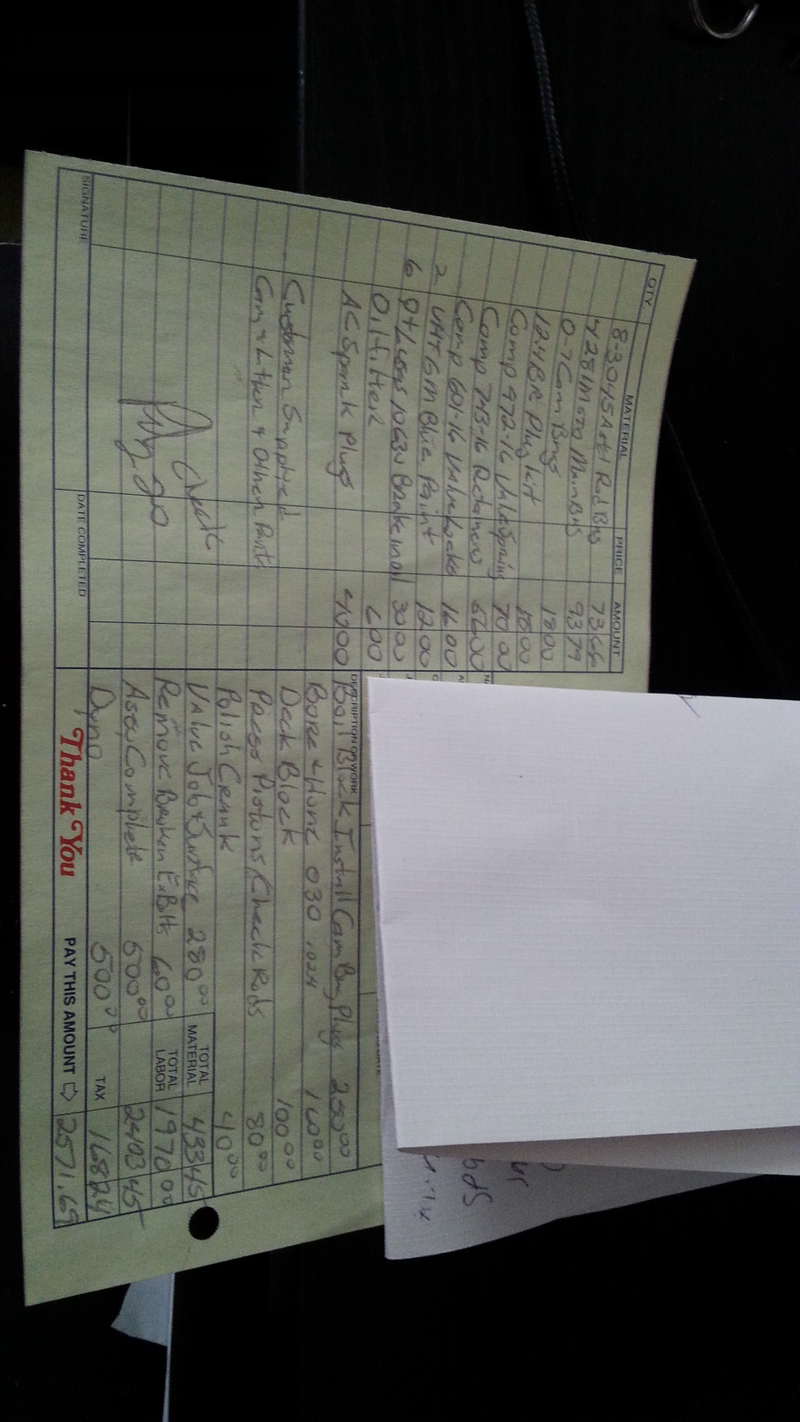 QTY. MATERIAL PRICE AMOUNT
8-3045A Rod Brg 73.66
4281M Main Brg 93.79
0-7 Cam Brng 18.00
124BR Plug Kit 15.00
Comp 972-16 Valve Spring 70.00
Comp 743-16 Retainers 66.00
Comp 601-16 Valve Locks 16.00
2 GM Blue Paint 12.00
6 Brake in oil 30.00
Oil Filter 6.00
AC Spark Plugs 40.00
Customer Supplied
Cam & Lifter & Other Parts
Check
SIGNATURE
DATE COMPLETED
DESCRIPTION OF WORK
Boil Block Install Cam Brng Plugs 250.00
Bore & Hone 030 160.00
Deck Block 100.00
Press Pistons, Check Rods 80.00
Polish Crank 40.00
Valve Job & Surface 280.00
Remove Broken Ex Bolts 60.00
Assy Complete 500.00
Dyno 500.00
TOTAL MATERIAL 433.45
TOTAL LABOR 1970.00
2403.45
TAX 168.24
Thank You
PAY THIS AMOUNT 2571.69